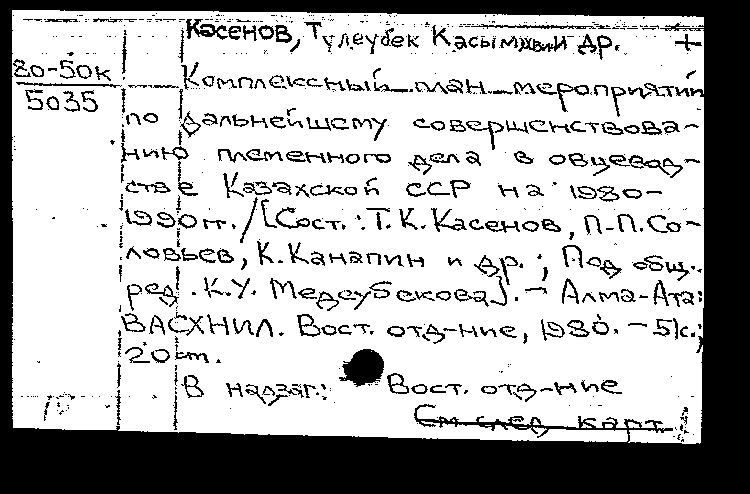 Касенов, Тулеубек Касымович и др. +
80-50к
5035
Комплексный план мероприятий
по дальнейшему совершенствова-
нию племенного дела в овцевод-
стве Казахской ССР на 1980-
1990 гг. / [Сост.: Т.К. Касенов, П.П. Со-
ловьев, К. Канапин и др.; Под общ.
ред. К.У. Медеубекова]. - Алма-Ата:
ВАСХНИЛ. Вост. отд-ние, 1980. - 51с.;
20 cm.
В надзаг.: Вост. отд-ние
См. след. карт.